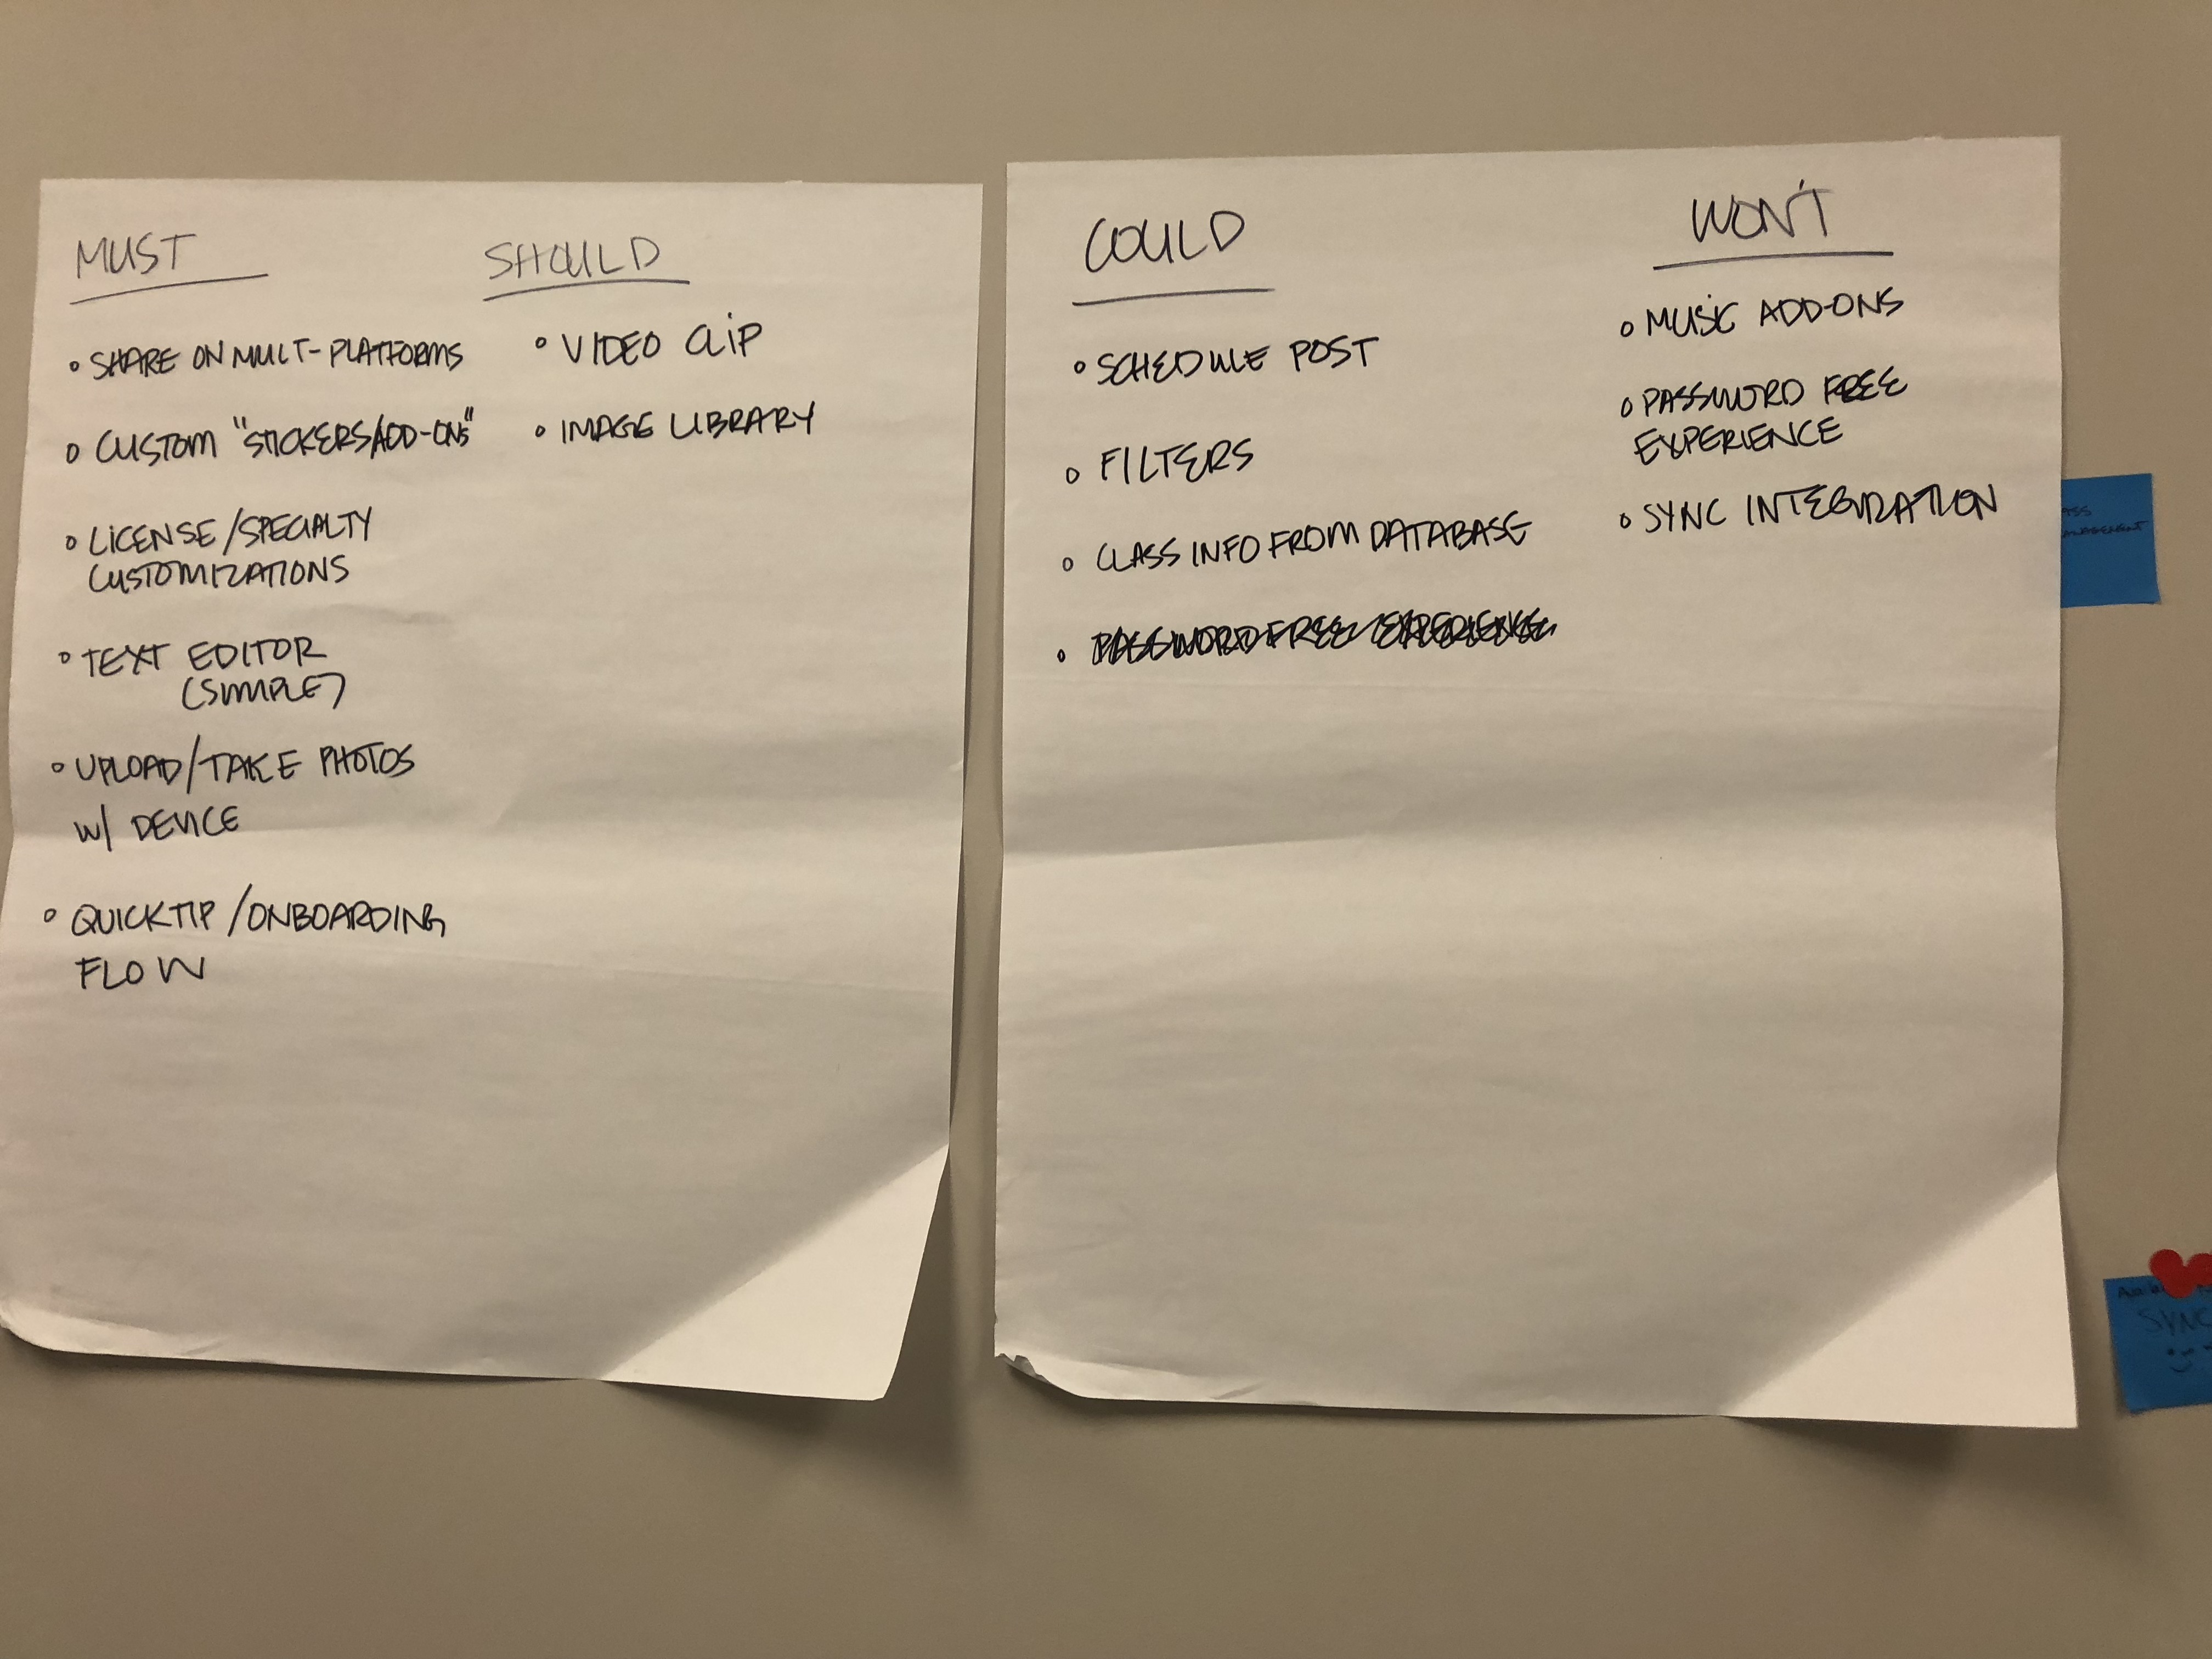 MUST
• SHARE ON MULT-PLATFORMS
• CUSTOM "STICKERS/ADD-ONS"
• LICENSE/SPECIALTY
CUSTOMIZATIONS
• TEXT EDITOR
(SIMPLE)
• UPLOAD/TAKE PHOTOS
W/ DEVICE
• QUICKTIP/ONBOARDING
FLOW
SHOULD
• VIDEO CLIP
• IMAGE LIBRARY
COULD
• SCHEDULE POST
• FILTERS
• CLASS INFO FROM DATABASE
• PASSWORD FREE EXPERIENCE
WON'T
• MUSIC ADD-ONS
• PASSWORD FREE
EXPERIENCE
• SYNC INTEGRATION
SYNC